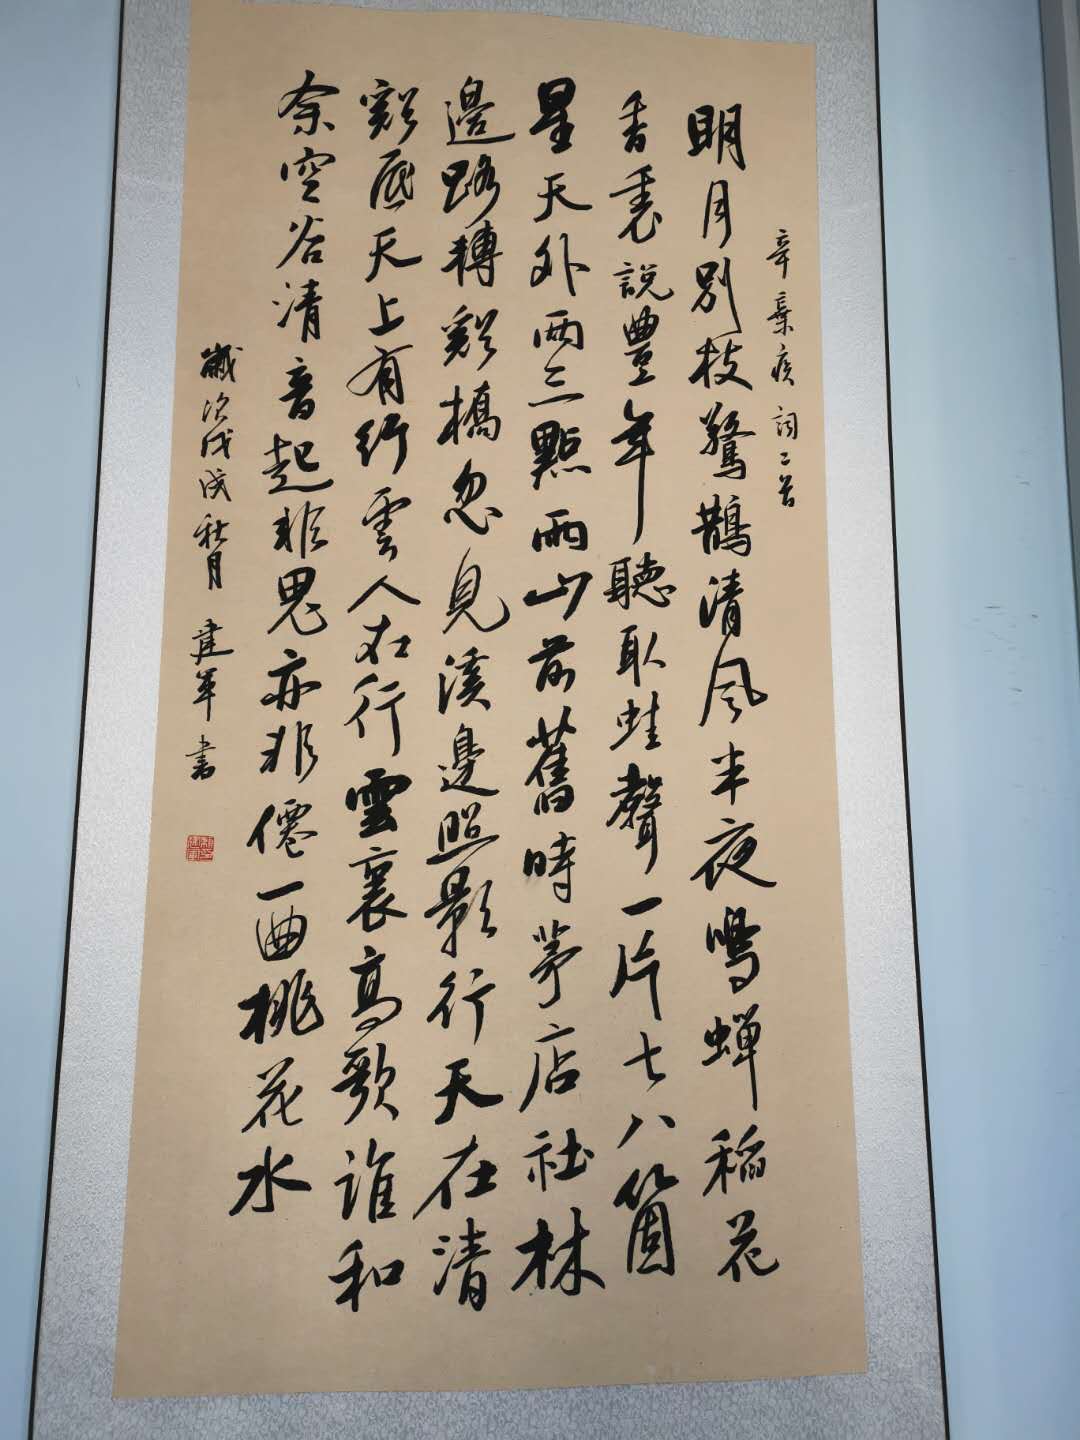 辛棄疾詞二首
明月別枝驚鵲清風半夜鳴蟬稻花
香裏說豐年聽取蛙聲一片七八箇
星天外兩三點雨山前舊時茅店社林
邊路轉谿橋忽見溪邊照影行天在清
谿底天上有行雲人在行雲裏高歌誰和
余空谷清音起非鬼亦非僊一曲桃花水
歲次戊戌秋月建軍書